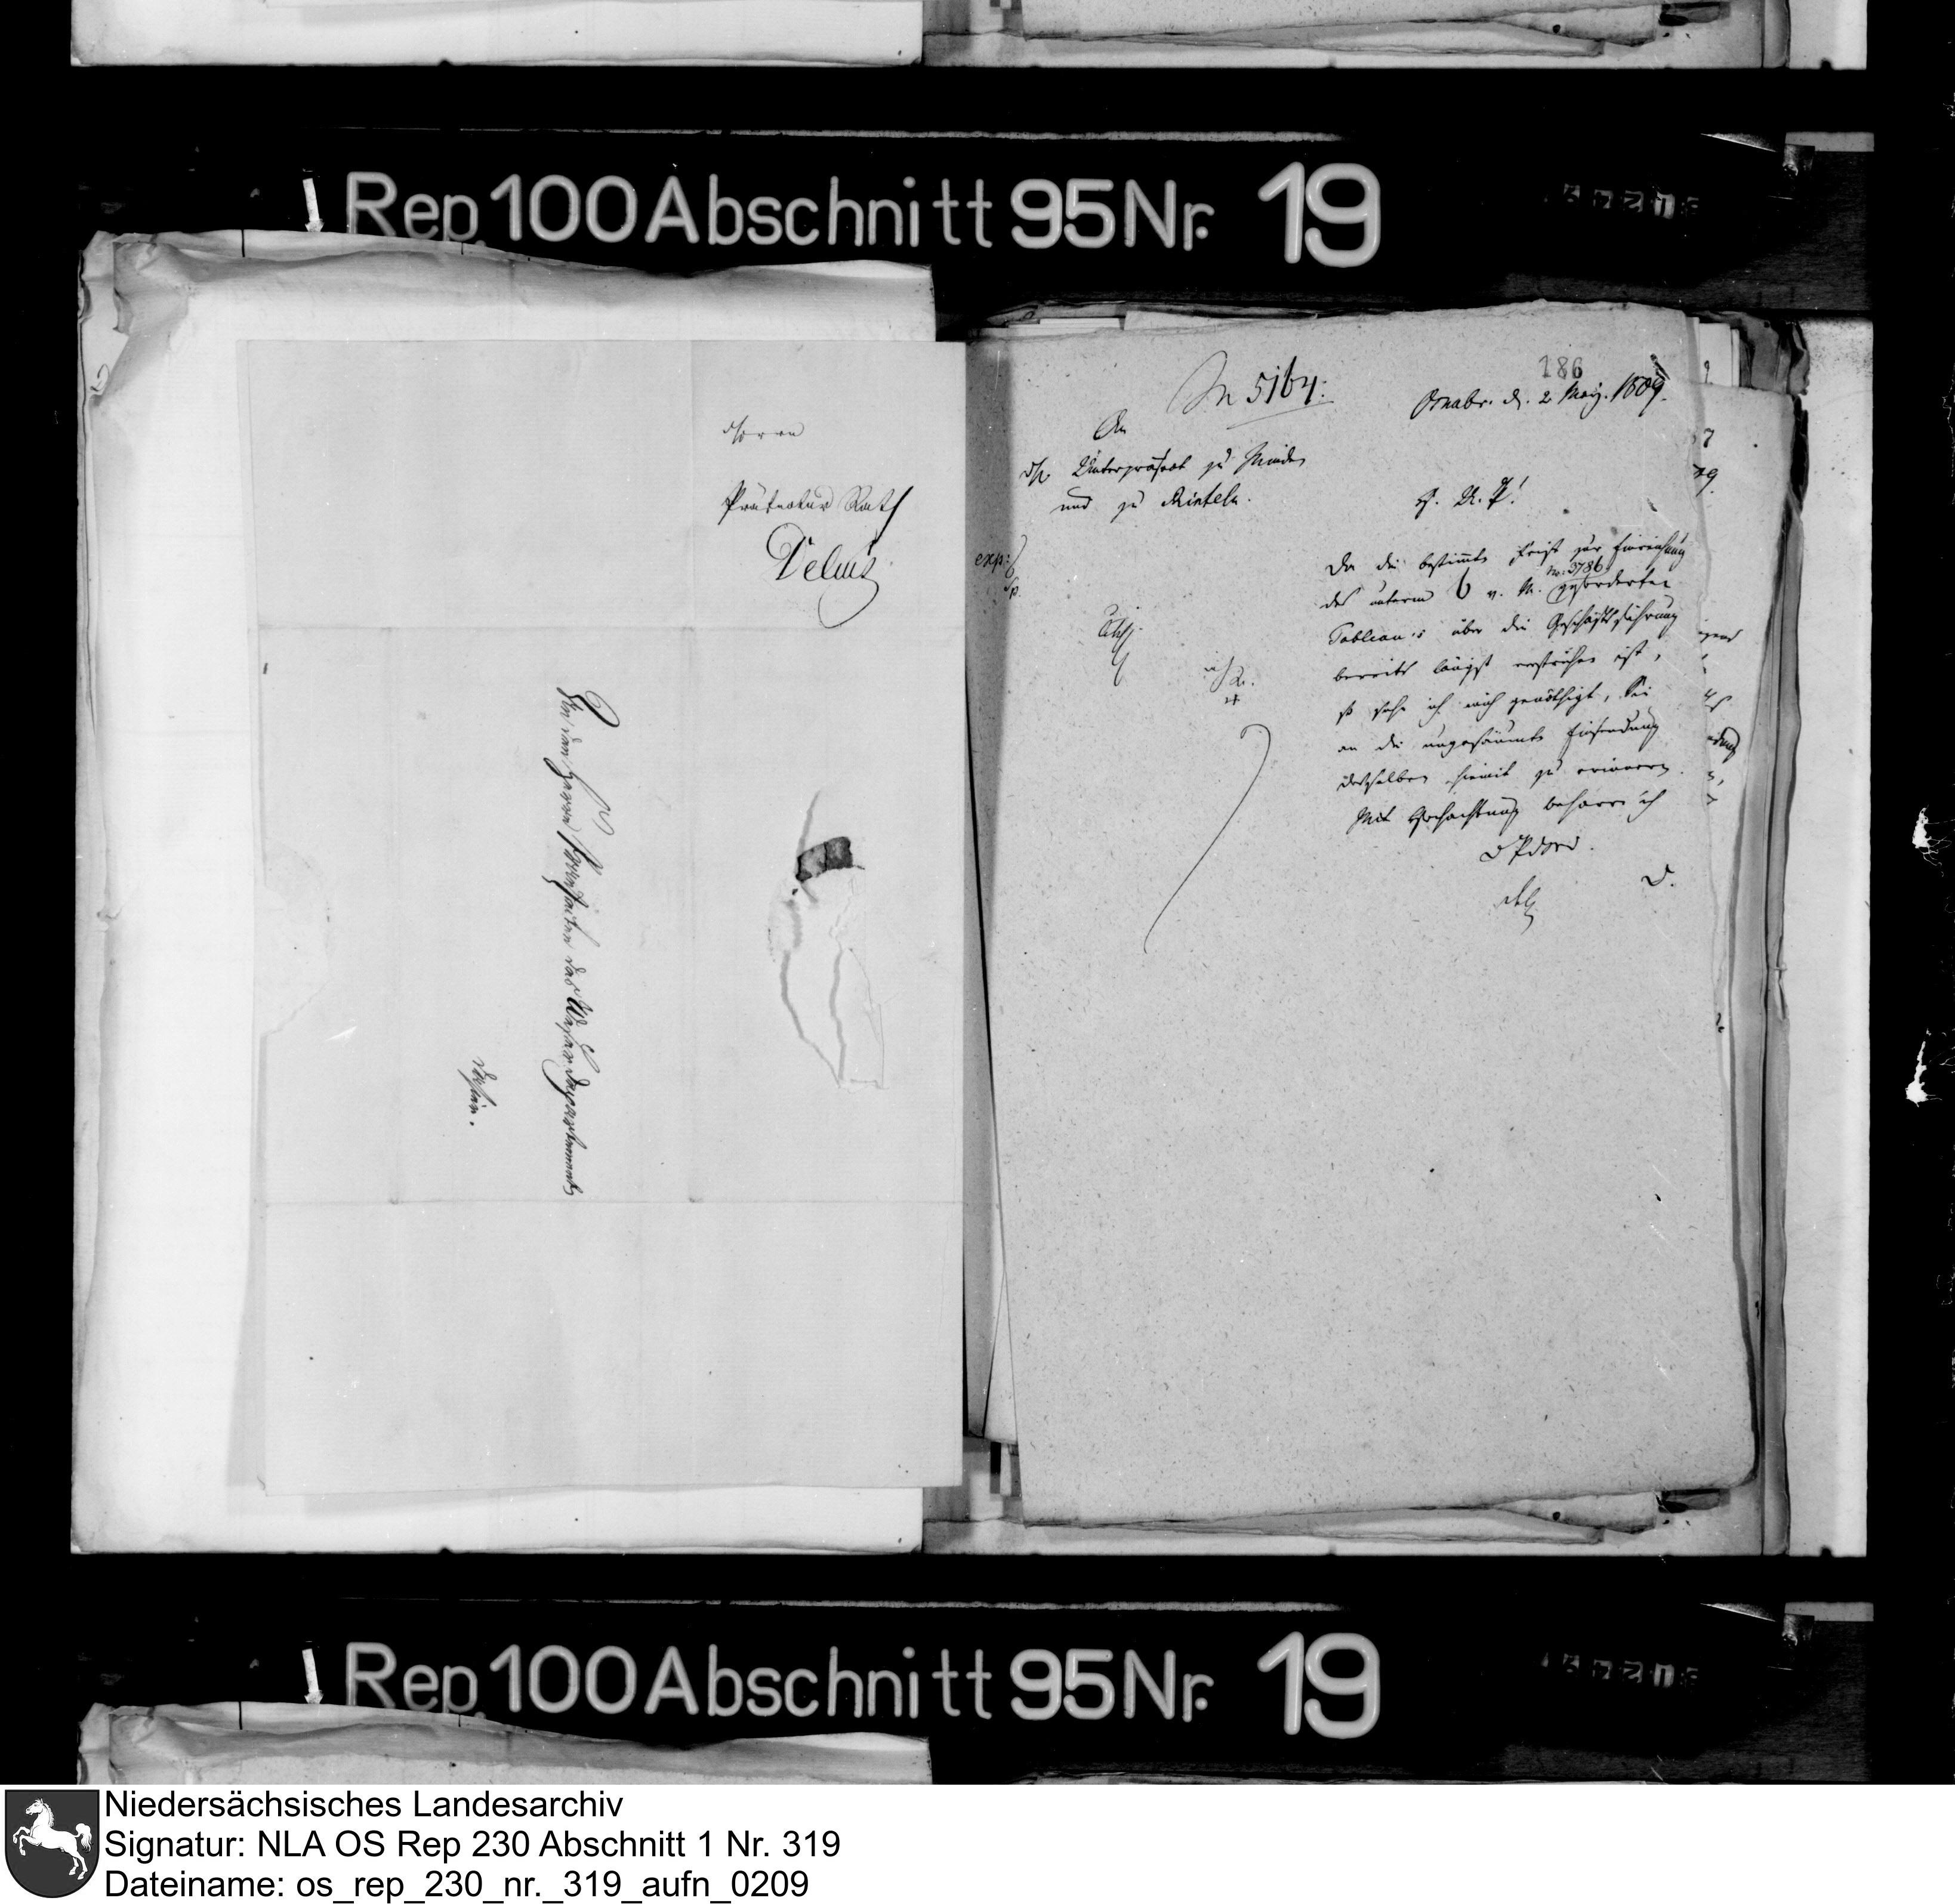 Rep. 100 Abschnitt 95 Nr. 19
Herrn
Präfectur Rath
Delius
An den Herrn Praefecten des Weser-Departements
dahier.
186
N 5164.
Osnabr. d. 2 May. 1809.
An
d. H. Unterpräfect zu Minden
und zu Rinteln.
H. U. P!
exp:
Da die bestimmte Frist zur Einreichung
des unterm 6 v. M. No. 3786 geforderten
Tableau's über die Geschäftsführung
bereits längst verstrichen ist,
so sehe ich mich genöthigt, Sie
an die ungesäumte Einsendung
desselben hiemit zu erinnern.
Mit Hochachtung beharre ich
D.
Rep. 100 Abschnitt 95 Nr. 19
Niedersächsisches Landesarchiv
Signatur: NLA OS Rep 230 Abschnitt 1 Nr. 319
Dateiname: os_rep_230_nr._319_aufn_0209